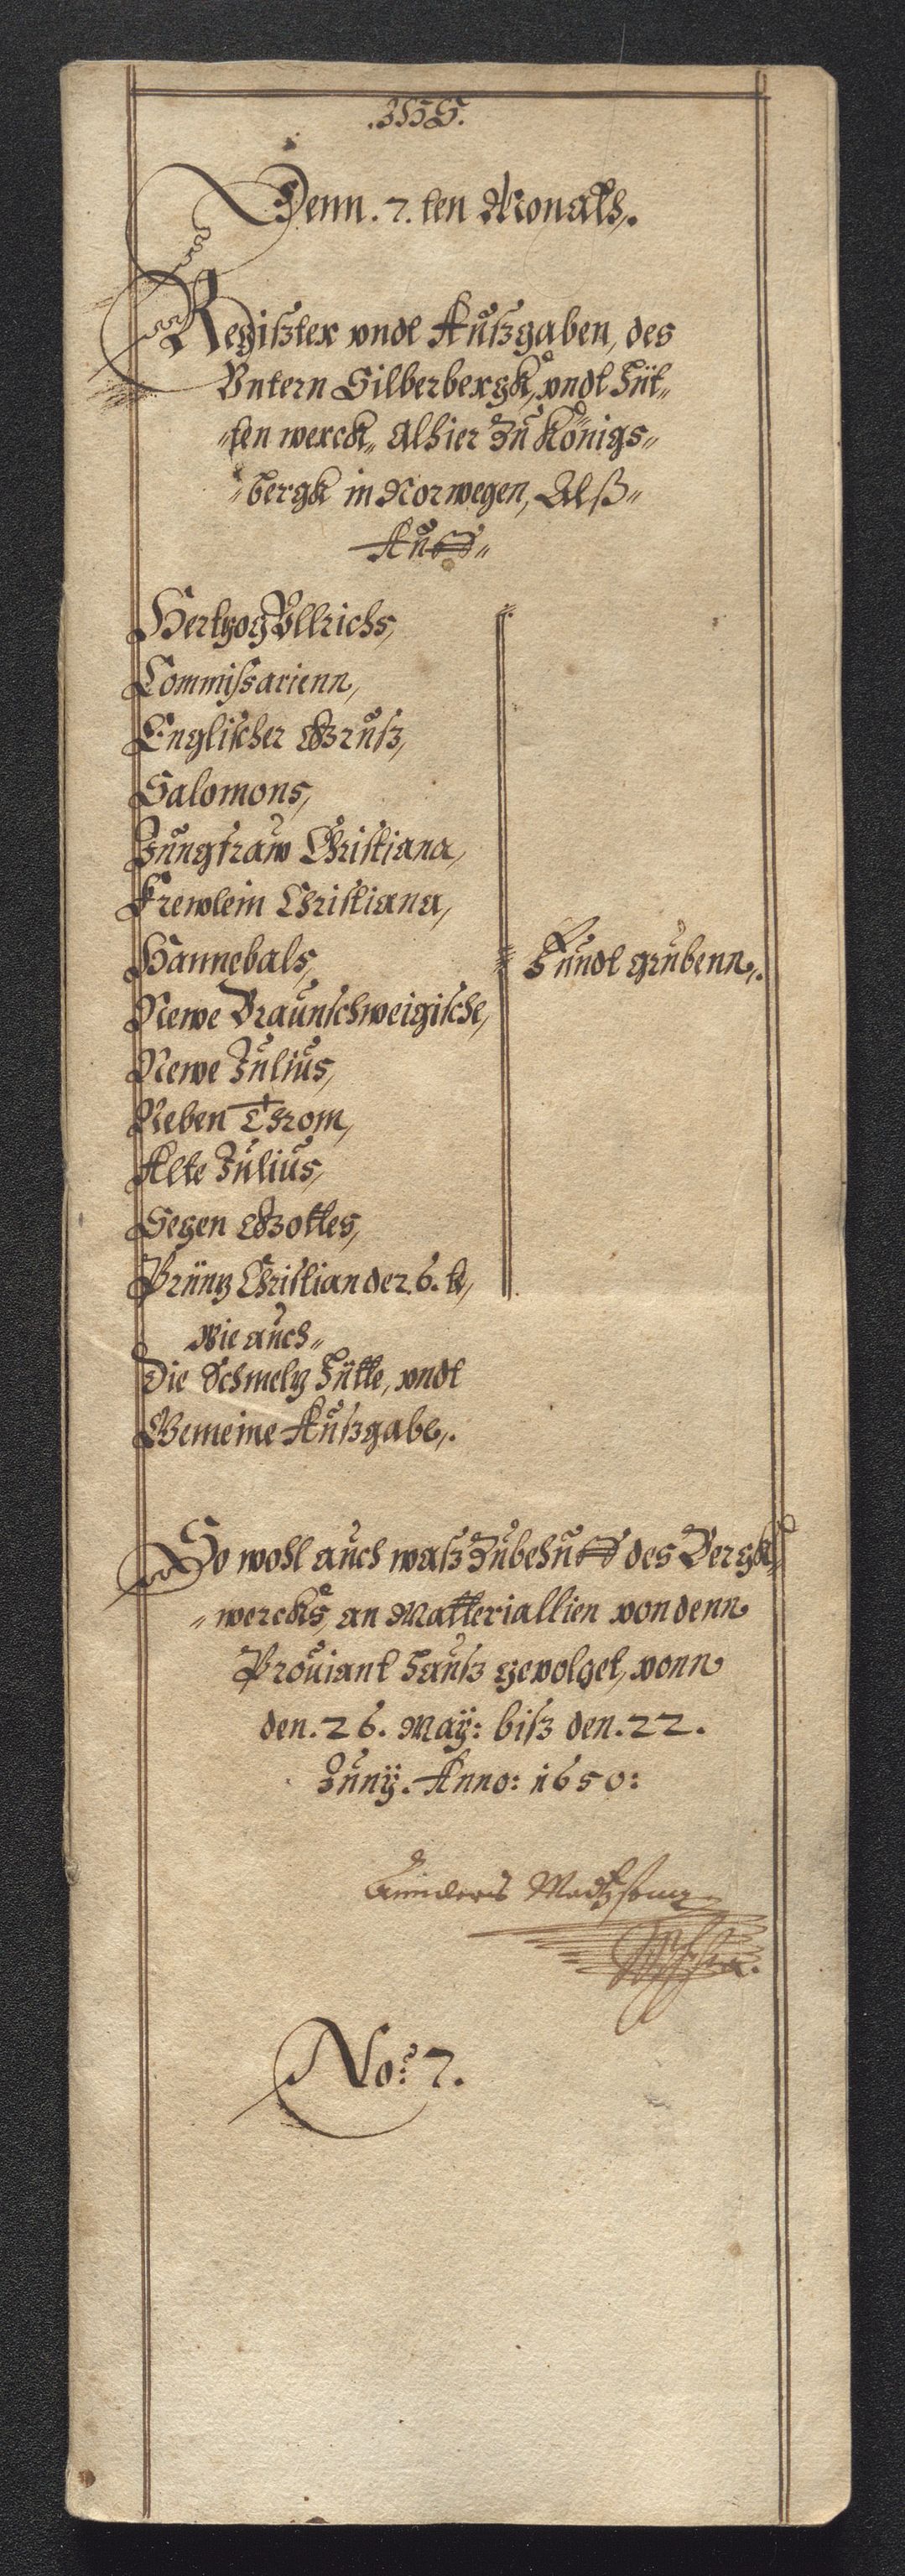 Denn. 7. ten Monaths,.
Regißter vndt Außgaben, des
Vntern Silberbergk, vndt Hüt„
„ten werck„ Alhier Zu Königs„
„bergk in Norwegen, Alß„
Auff„
Hertzog Vllrichs,
Commissarienn,
Englischer Gruß,
Salomons,
Jungfraw Christiana,
Frewlein Christiana,
Hannebals,
Fundt grubenn,.
Newe Braunschweigische,
Newe Julius,
Neben Throm,
Alte Julius,
Segen Gottes,
Printz Christian der 6. te,
Wie auch„
Die Schmeltz Hütte, vndt
Gemeine Außgabe,.
So wohl auch waß Zubehuff des Bergk„
„wercks, an Matteriallien von denn
Proviant Hauß gevolget, vonn
den. 26. Maÿ: biß den. 22.
Junÿ. Anno: 1650:
No: 7.